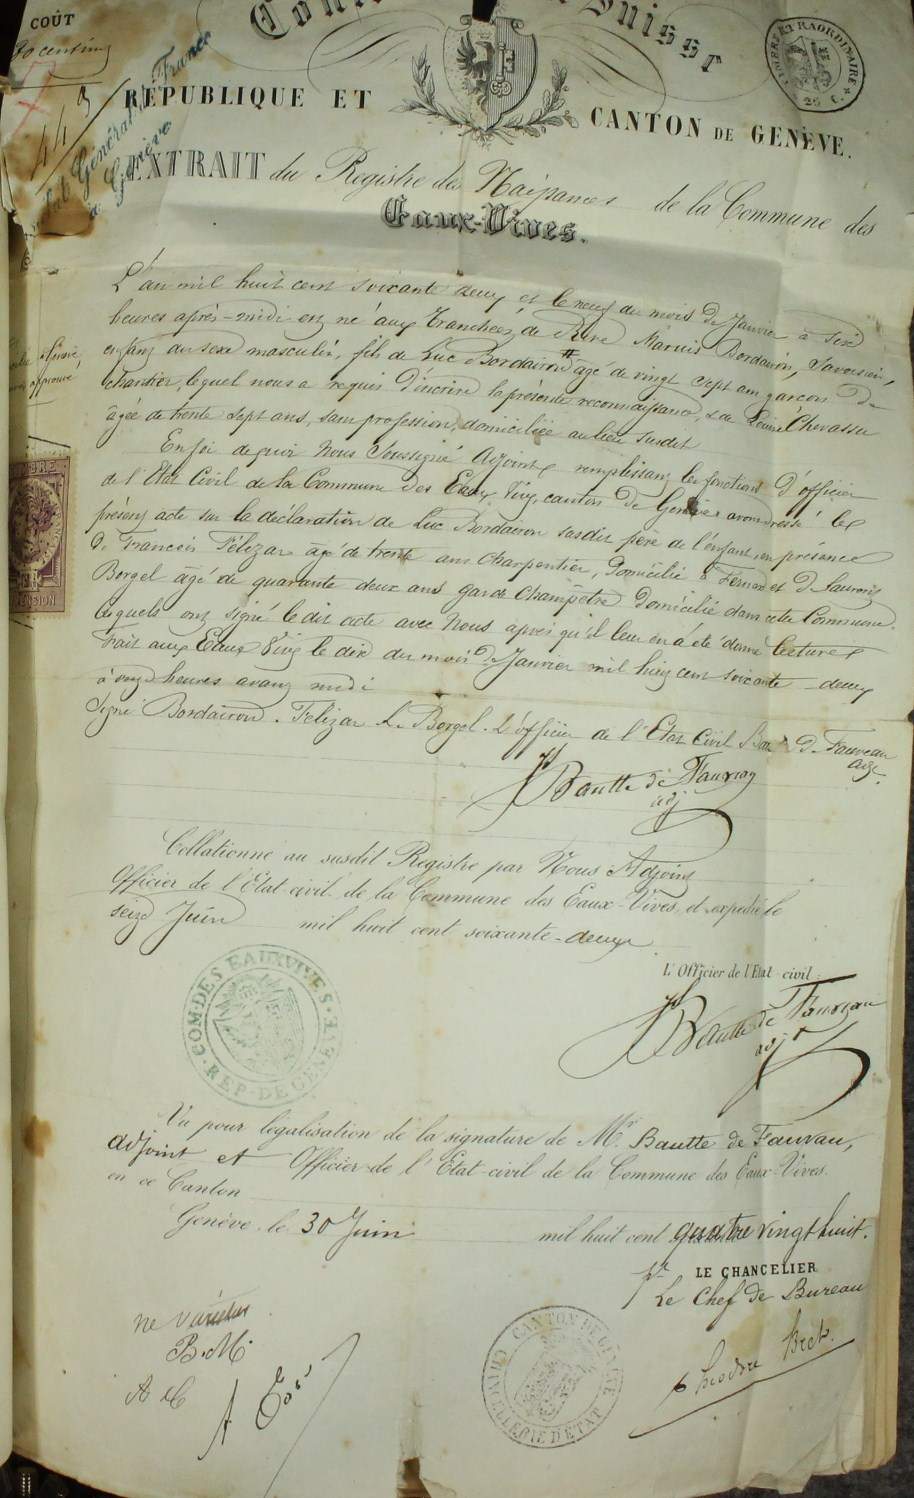 COÛT
Suisse
TIMBRE EXTRAORDINAIRE
25 C.
443
Consulat Général de France
à Genève
RÉPUBLIQUE ET CANTON DE GENÈVE.
EXTRAIT du Registre des Naissances de la Commune des
Eaux-Vives.
L'an mil huit cent soixante deux et le neuf du mois de Janvier à six
heures après-midi est né aux Tranchées de Rive Marius Bordairon, Savoisien,
enfant du sexe masculin, fils de Luc Bordairon # âgé de vingt sept ans garçon de
chantier, lequel nous a requis d'inscrire la présente reconnaissance, & de Chevassu
âgée de trente sept ans, sans profession, domiciliée au lieu susdit
En foi de quoi Nous Soussigné Adjoint remplissant les fonctions d'officier
de l'Etat Civil de la Commune des Eaux Vives canton de Genève avons dressé le
présent acte sur la déclaration de Luc Bordairon susdit père de l'enfant, en présence
de Francois Félizar âgé de trente ans charpentier, domicilié à et de
Borgel âgé de quarante deux ans garde champêtre domicilié dans cette Commune.
lesquels ont signé le dit acte avec Nous après qu'il leur en a été donné lecture
Fait aux Eaux Vives le dix du mois de Janvier mil huit cent soixante - deux
à onze heures avant midi
Signé Bordairon. Felizar L. Borgel. L'officier de l'Etat Civil de Fauveau
adj.
Bautte de Fauveau
adj
Collationné au susdit Registre par Nous Adjoint
Officier de l'Etat civil de la Commune des Eaux-Vives, et expédié le
seize Juin mil huit cent soixante-deux
L'Officier de l'Etat-civil
COM. DES EAUX VIVES.
REP. DE GENÈVE
Bautte de Fauveau
adjt
Vu pour légalisation de la signature de Mr. Bautte de Fauvau,
adjoint et Officier de l'Etat-civil de la Commune des Eaux-Vives.
en ce Canton
Genève, le 30 Juin mil huit cent quatre vingt huit.
LE CHANCELIER
pr Le Chef de Bureau
ne varietur
B. M.
CANTON DE GENÈVE
CHANCELLERIE D'ETAT
Théodore Bret.